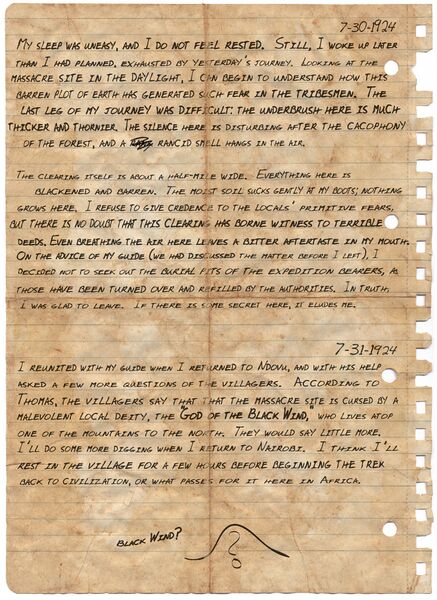 7-30-1924
My sleep was uneasy, and I do not feel rested. Still, I woke up later
than I had planned, exhausted by yesterday's journey. Looking at the
massacre site in the daylight, I can begin to understand how this
barren plot of earth has generated such fear in the tribesmen. The
last leg of my journey was difficult: the underbrush here is much
thicker and thornier. The silence here is disturbing after the cacophony
of the forest, and a rancid smell hangs in the air.
The clearing itself is about a half-mile wide. Everything here is
blackened and barren. The moist soil sucks gently at my boots; nothing
grows here. I refuse to give credence to the locals' primitive fears,
but there is no doubt that this clearing has borne witness to terrible
deeds. Even breathing the air here leaves a bitter aftertaste in my mouth.
On the advice of my guide (we had discussed the matter before I left), I
decided not to seek out the burial pits of the expedition bearers, as
those have been turned over and refilled by the authorities. In truth,
I was glad to leave. If there is some secret here, it eludes me.
7-31-1924
I reunited with my guide when I returned to Ndovu, and with his help
asked a few more questions of the villagers. According to
Thomas, the villagers say that that the massacre site is cursed by a
malevolent local deity, the "God of the Black Wind," who lives atop
one of the mountains to the north. They would say little more.
I'll do some more digging when I return to Nairobi. I think I'll
rest in the village for a few hours before beginning the trek
back to civilization, or what passes for it here in Africa.
Black Wind?
?